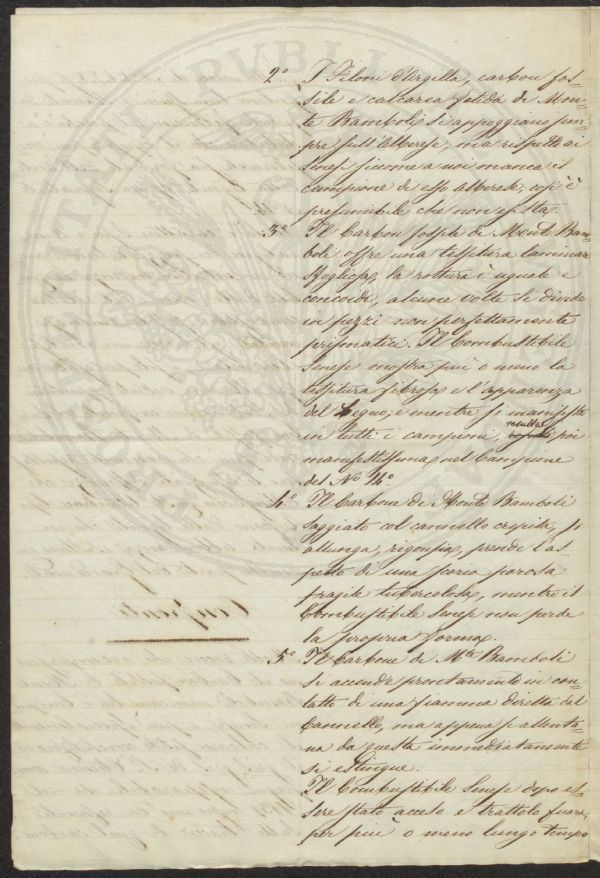 2° I Filoni d'Argilla, carbon fos=
sile e calcarea fetida di Mon=
te Bamboli si appoggiano sem=
pre sull'Alberese, ma rispetto ai
Senesi siccome a noi manca il
Campione di esso alberese, cosi è
presumibile che non esista.
3° Il Carbon fossile di Monte Bam=
boli offre una tessitura laminar
sfogliosa, la rottura è uguale e
concoide, alcune volte si divide
in pezzi non perfettamente
prismatici. Il Combustibile
Senese mostra più o meno la
tessitura fibrosa e l'apparenza
del Legno; e mentre si manifesta
in tutti i campioni, resulta poi
manifestissima nel Campione
del N° 4°
4° Il Carbone di Monte Bamboli
saggiato col cannello crepita, si
allunga, rigonfia, prende l'as=
petto di una scoria porosa
fragile tubercolosa, mentre il
Combustibile Senese non perde
la propria forma.
Confronto
5° Il Carbone di M.te Bamboli
si accende prontamente in con=
tatto di una fiamma diretta del
Cannello, ma appena si allonta=
na da questa immediatamente
si estingue.
Il Combustibile Senese dopo es=
sere stato acceso e trattolo fuori,
per più o meno lungo tempo